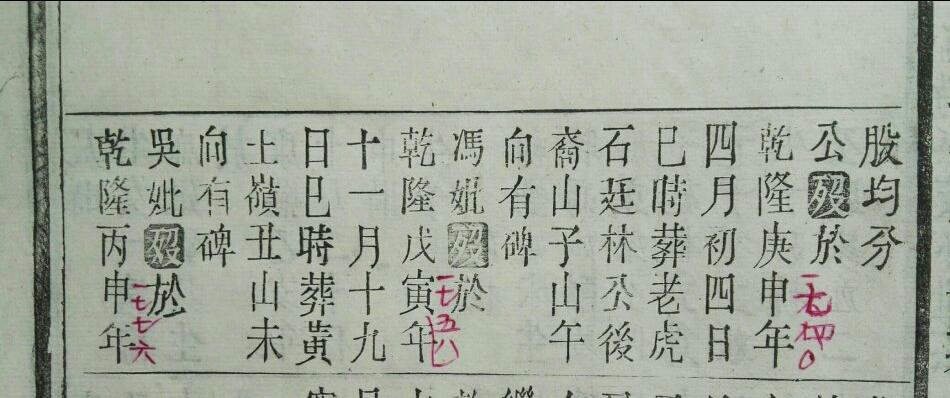 股均分
公歿於
乾隆庚申年
一七四〇
四月初四日
巳時葬老虎
石廷林公後
裔山子山午
向有碑
馮妣歿於
一七五八
乾隆戊寅年
十一月十九
日巳時葬黃
土嶺丑山未
向有碑
吳妣歿於
一七七六
乾隆丙申年